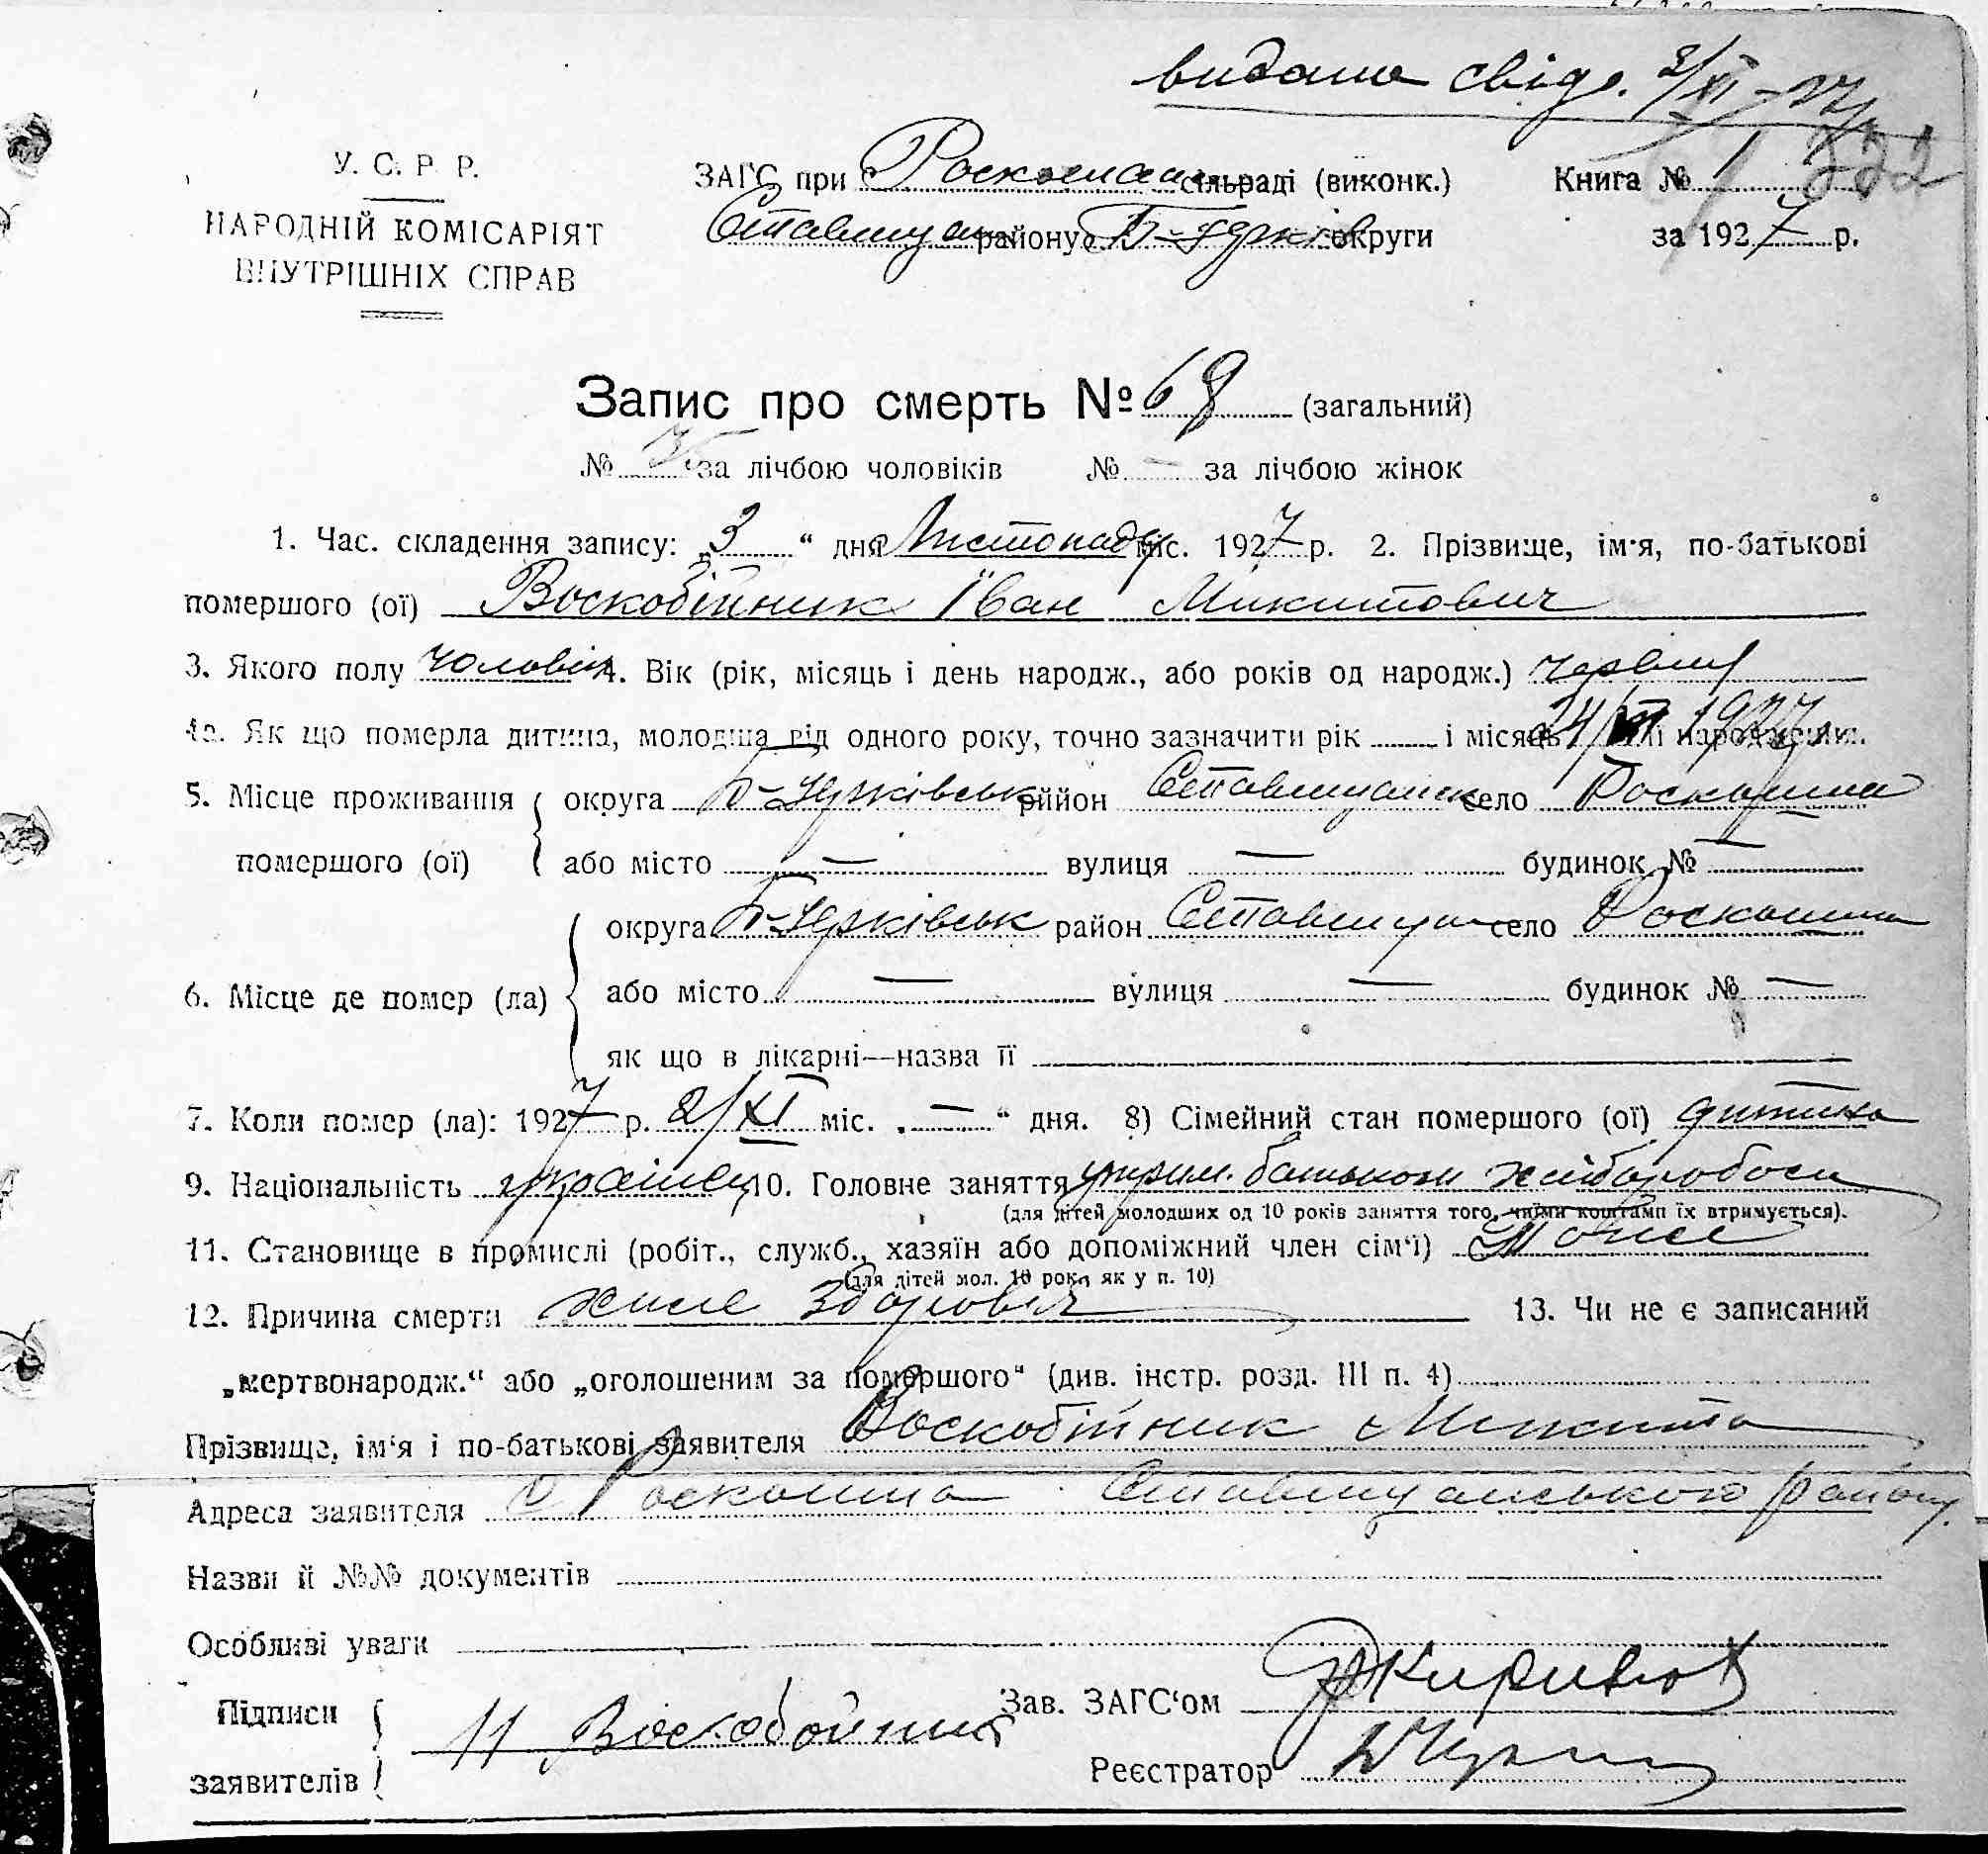 видано свід. 3/XI – 27
У. С. Р. Р.
НАРОДНІЙ КОМІСАРІЯТ
ВНУТРІШНІХ СПРАВ
ЗАГС при Роскошан сільраді (виконк.) Книга № 1 222
Ставищан району Б-Церків округи за 1927 р.
Запис про смерть № 68 (загальний)
№ за лічбою чоловіків № — за лічбою жінок
1. Час. складення запису: „3“ дня Листопаду міс. 1927 р. 2. Прізвище, ім'я, по-батькові
помершого (ої) Воскобійник Іван Микитович
3. Якого полу чоловік 4. Вік (рік, місяць і день народж., або років од народж.) червня
4а. Як що померла дитина, молодша від одного року, точно зазначити рік і місяць 24/VI 1927 народження.
5. Місце проживання округа Б-Церківськ рййон Ставищанск село Роскошна
помершого (ої) або місто — вулиця — будинок № —
округа Б-Церківськ район Ставищан село Роскошна
6. Місце де помер (ла) або місто — вулиця — будинок № —
як що в лікарні—назва її
7. Коли помер (ла): 1927 р. 2/XI міс. „—“ дня. 8) Сімейний стан помершого (ої) дитина
9. Національність українец 10. Головне заняття утрим. батьком хліборобом
(для дітей молодших од 10 років заняття того, чиїми коштами їх втримується).
11. Становище в промислі (робіт., служб., хазяїн або допоміжний член сім'ї) Тоже
(для дітей мол. 10 рок. як у п. 10)
12. Причина смерти здоровля 13. Чи не є записаний
„мертвонародж.“ або „оголошеним за помершого“ (див. інстр. розд. III п. 4)
Прізвище, ім'я і по-батькові заявителя Воскобійник Микита
Адреса заявителя с Роскошна Ставищанського району.
Назви й №№ документів
Особливі уваги
Підписи Зав. ЗАГС'ом
заявителів Н Воскобойник
Реєстратор